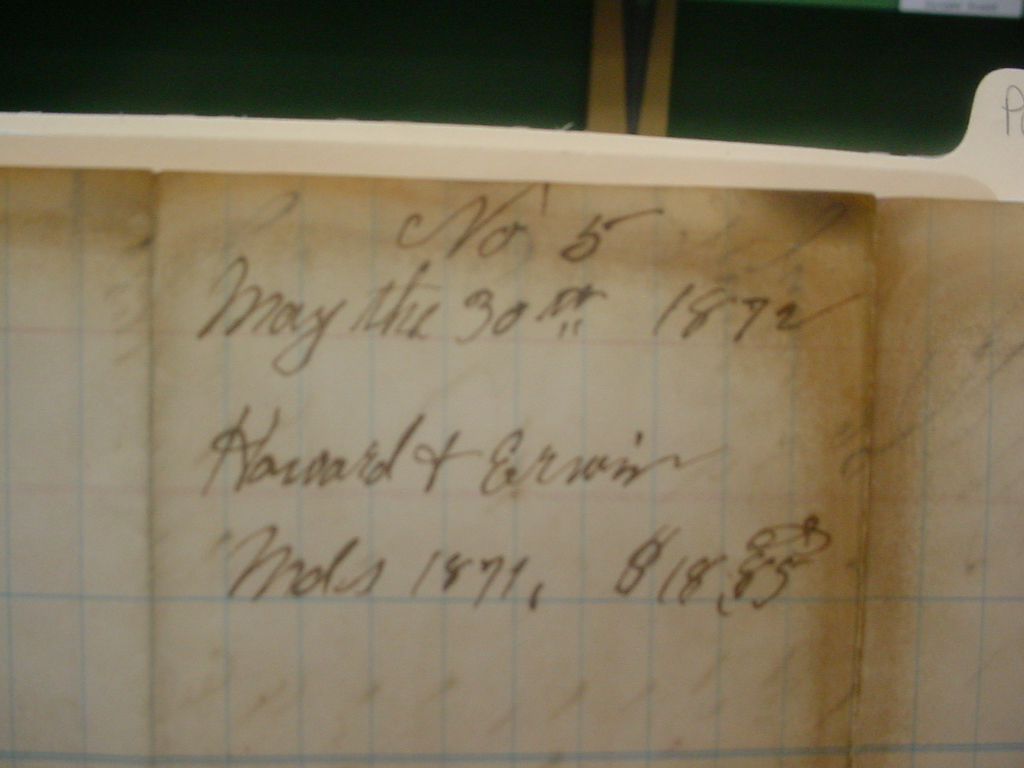 No 5
May the 30th 1872
Howard & Erwin
Mds 1871, $18,85